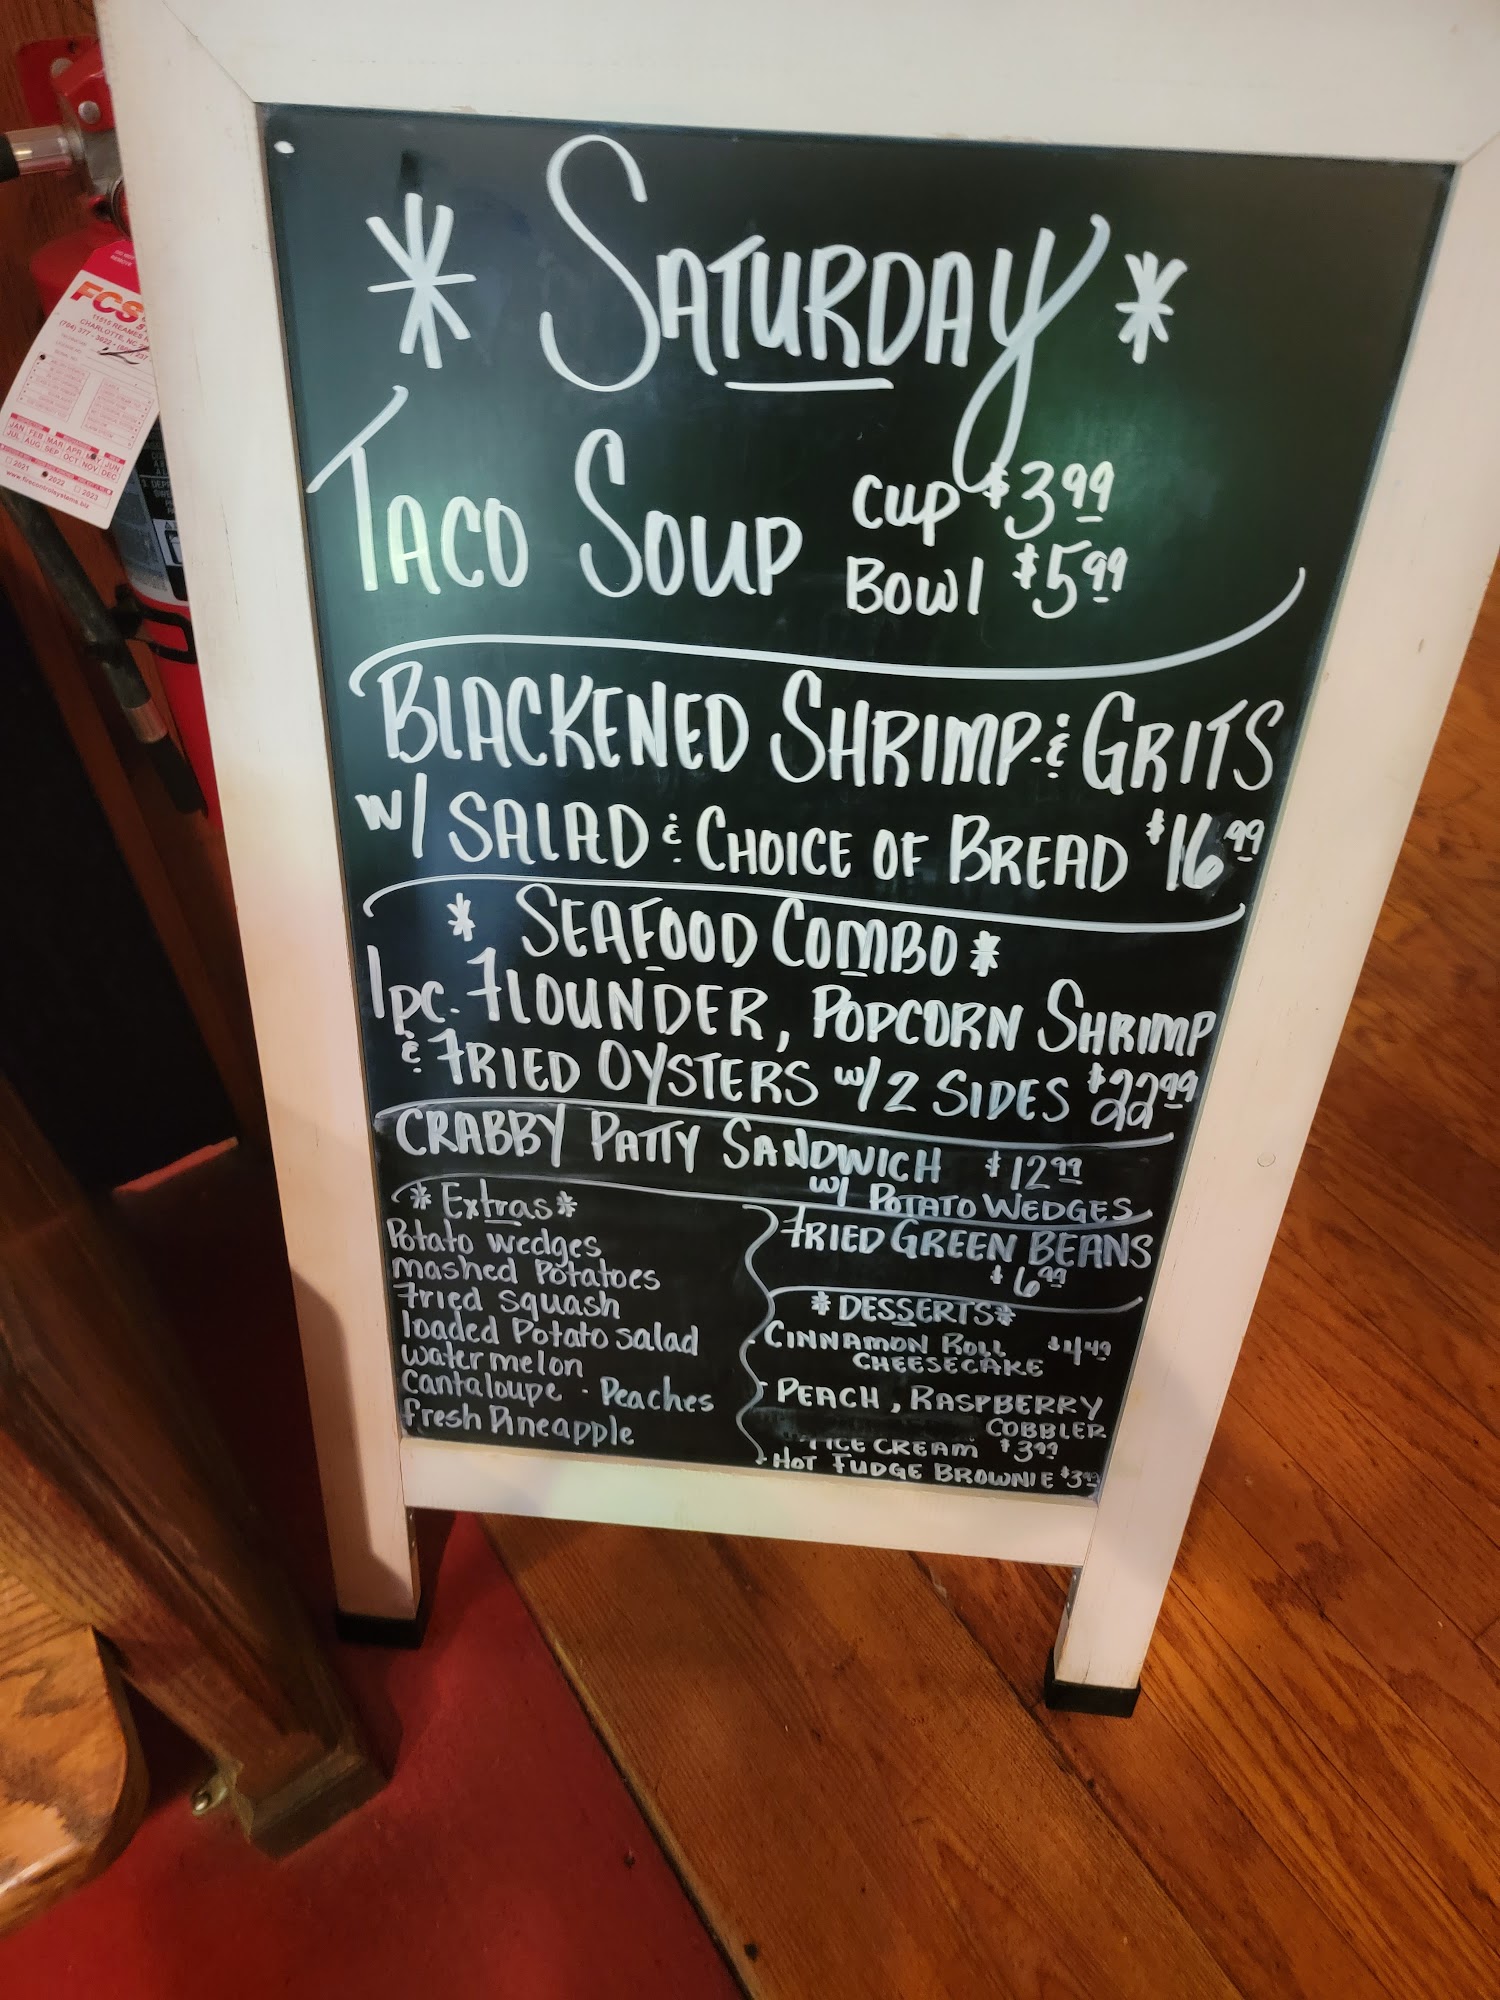 * SATURDAY *
TACO SOUP CUP $3.99
BOWl $5.99
BLACKENED SHRIMP & GRITS
W/ SALAD & CHOICE OF BREAD $16.99
* SEAFOOD COMBO *
1pc. FLOUNDER, POPCORN SHRIMP
& FRIED OYSTERS w/2 SIDES $22.99
CRABBY PATTY SANDWICH $12.99
w/ POTATO WEDGES
* Extras *
Potato wedges
mashed Potatoes
Fried squash
loaded Potato salad
watermelon
cantaloupe - Peaches
fresh Pineapple
FRIED GREEN BEANS
$6.99
* DESSERTS *
CINNAMON ROLL $4.49
CHEESECAKE
- PEACH, RASPBERRY
COBBLER
ICE CREAM $3.99
- HOT FUDGE BROWNIE $3.99
FCS
CHARLOTTE, NC
JAN FEB MAR APR MAY JUN
JUL AUG SEP OCT NOV DEC
2021 2022 2023